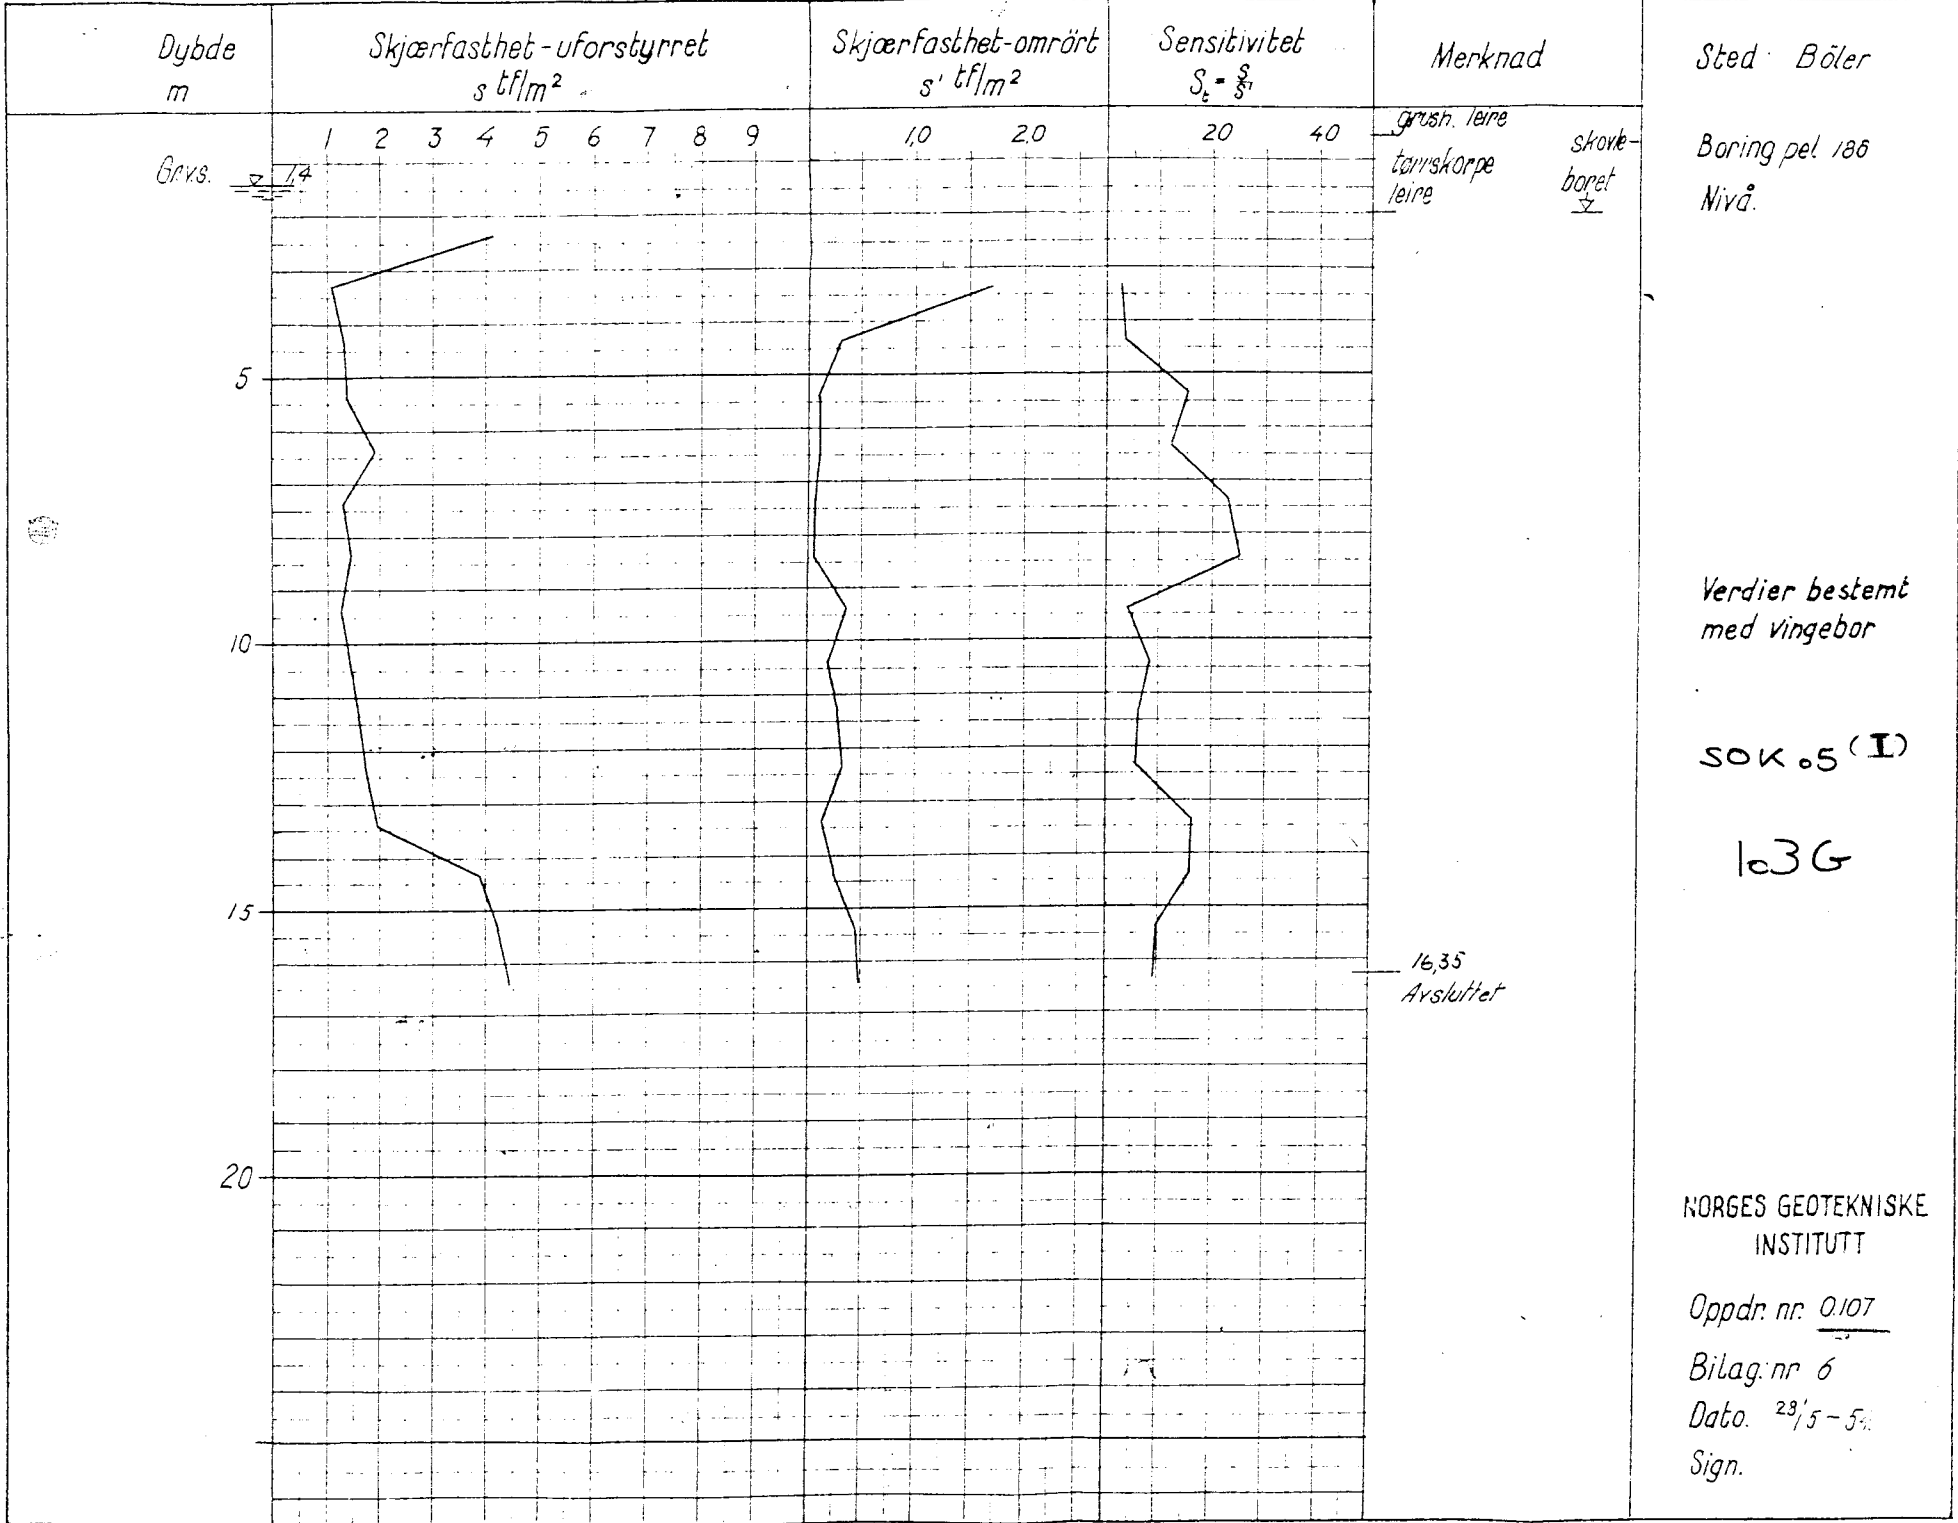 Dybde
m
Skjærfasthet - uforstyrret
s tf/m²
Skjærfasthet - omrört
s' tf/m²
Sensitivitet
Sₜ = s/s'
Merknad
1 2 3 4 5 6 7 8 9
1,0 2,0
20 40
Grvs. 1,4
5
10
15
20
grush. leire
tørrskorpe
leire
skovle-
boret
16,35
Avsluttet
Sted: Böler
Boring pel 186
Nivå.
Verdier bestemt
med vingebor
SOK 05 (I)
103G
NORGES GEOTEKNISKE
INSTITUTT
Oppdr. nr. 0.107
Bilag: nr 6
Dato.
Sign.